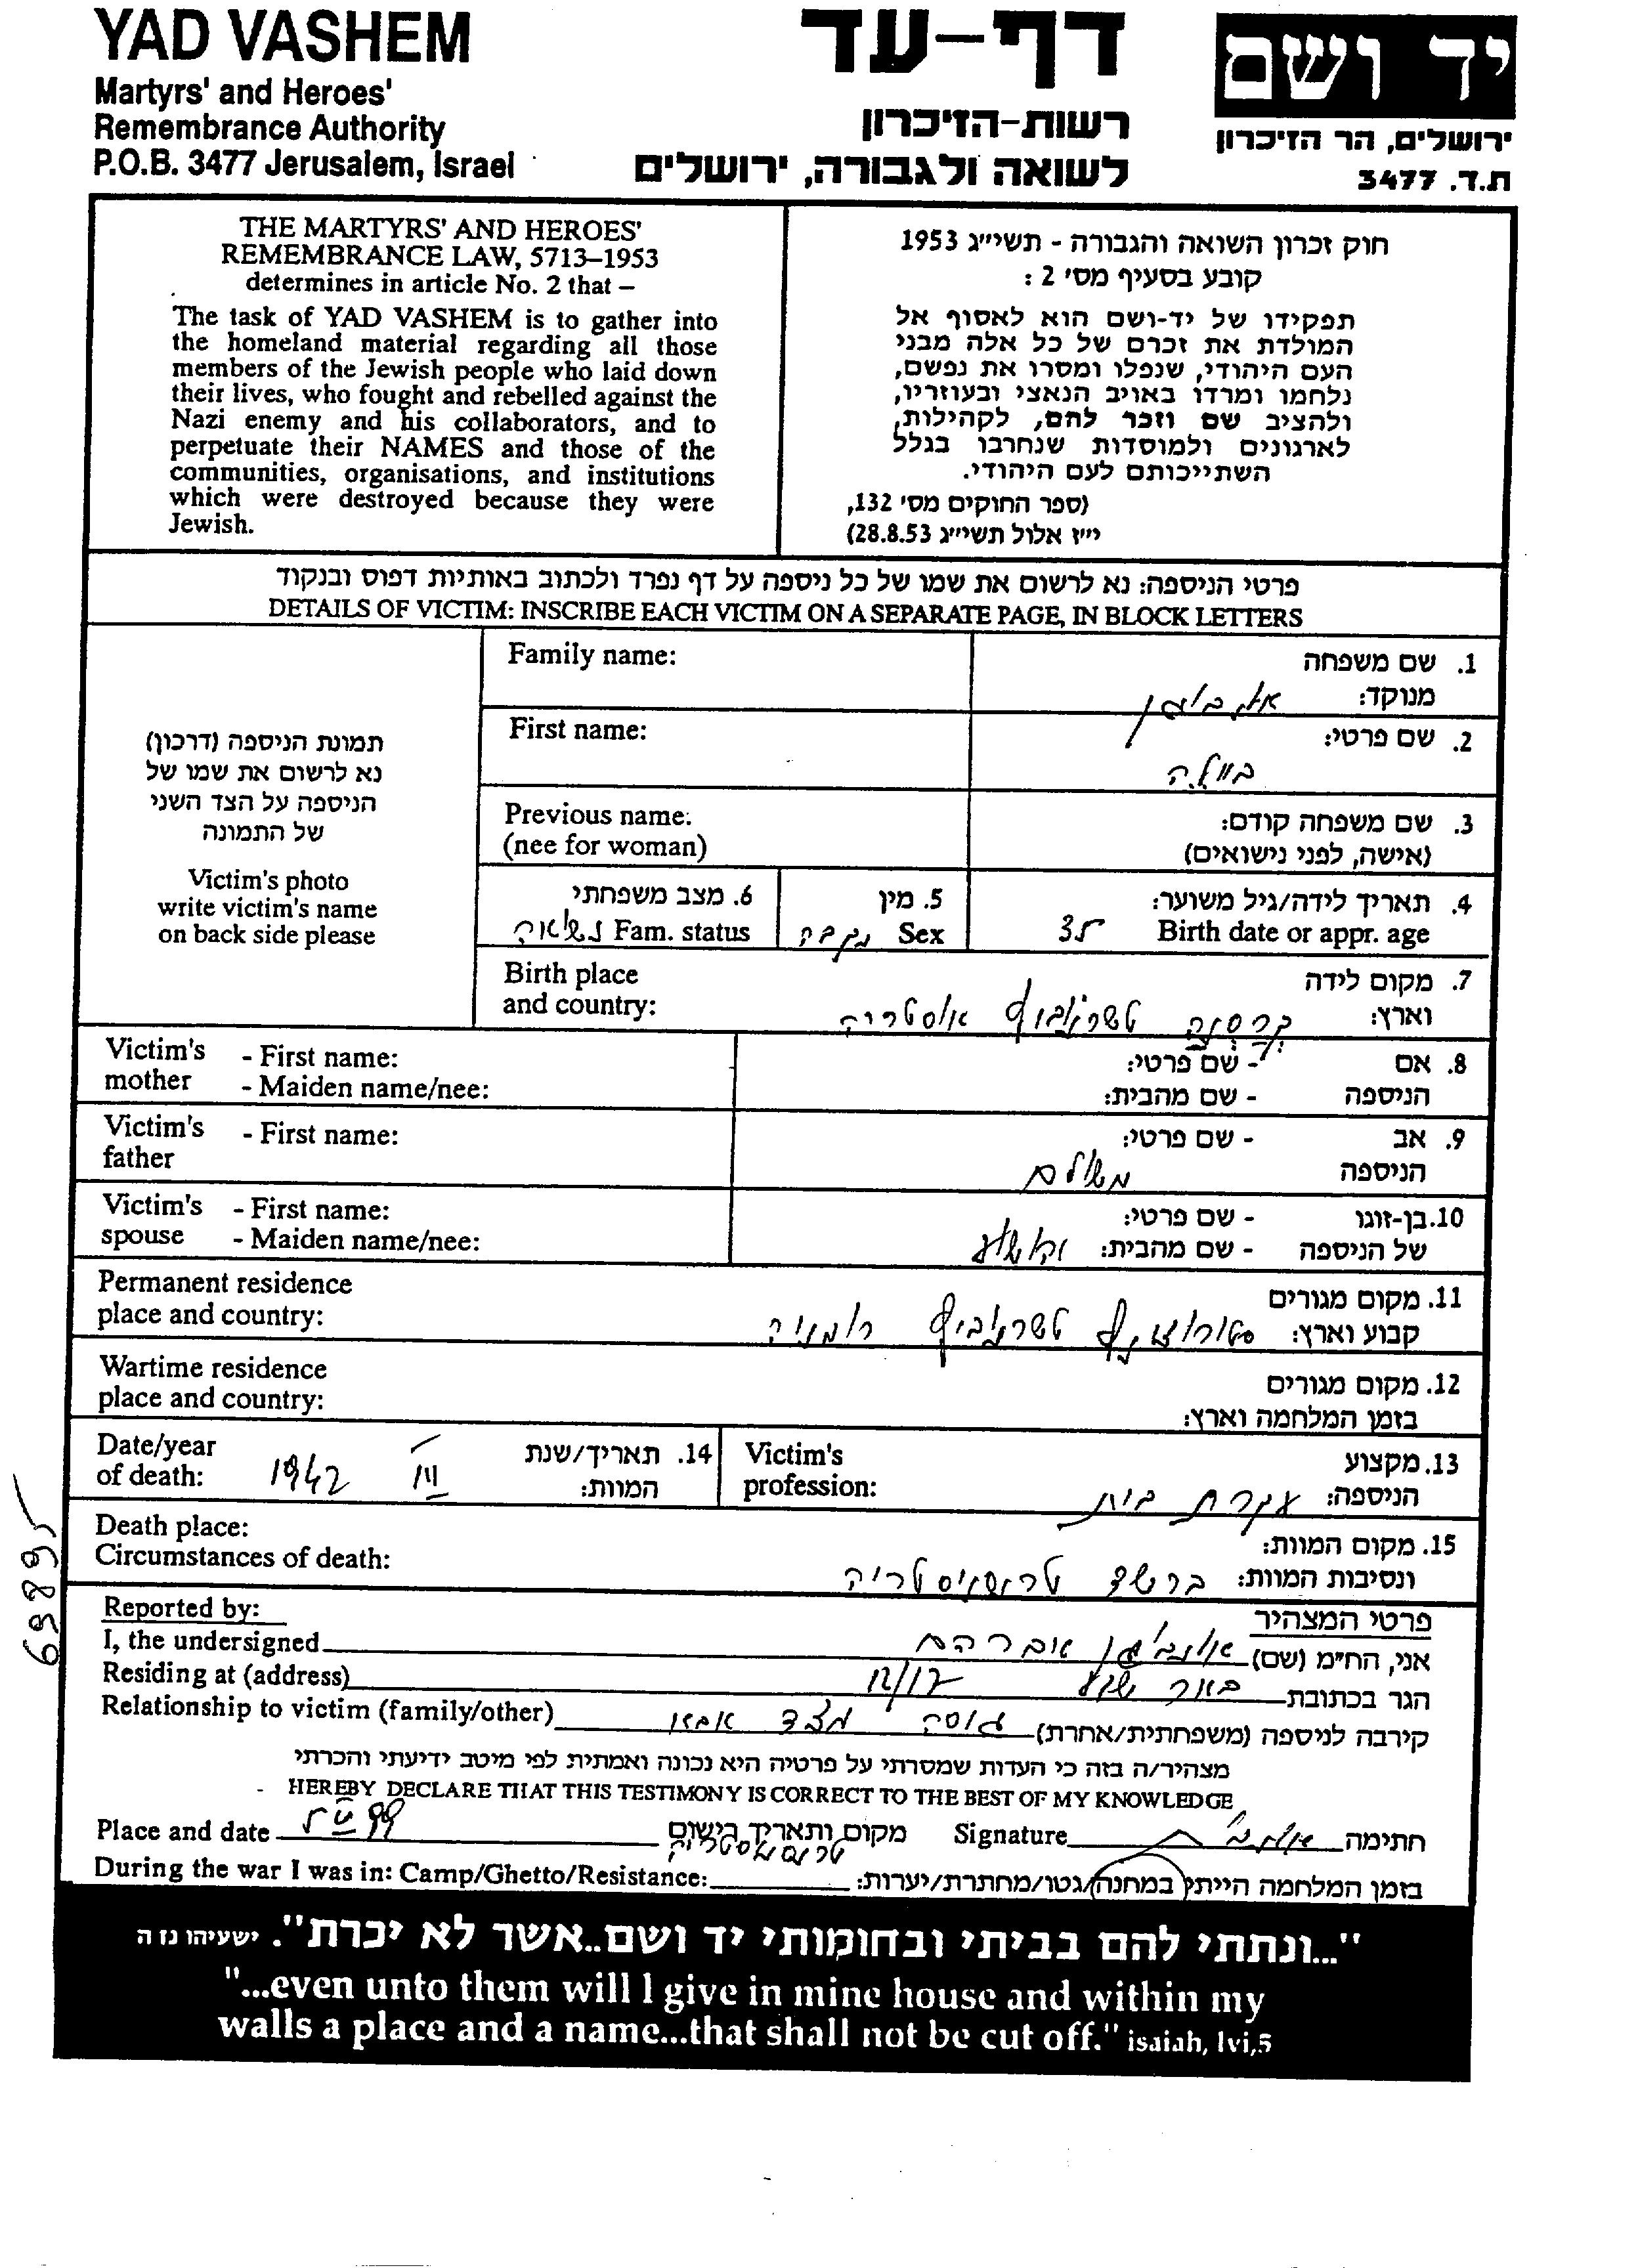 YAD VASHEM
Martyrs' and Heroes'
Remembrance Authority
P.O.B. 3477 Jerusalem, Israel
דף-עד
רשות-הזיכרון
לשואה ולגבורה, ירושלים
יד ושם
ירושלים, הר הזיכרון
ת.ד. 3477
THE MARTYRS' AND HEROES'
REMEMBRANCE LAW, 5713–1953
determines in article No. 2 that –
The task of YAD VASHEM is to gather into
the homeland material regarding all those
members of the Jewish people who laid down
their lives, who fought and rebelled against the
Nazi enemy and his collaborators, and to
perpetuate their NAMES and those of the
communities, organisations, and institutions
which were destroyed because they were
Jewish.
חוק זכרון השואה והגבורה - תשי״ג 1953
קובע בסעיף מס׳ 2 :
תפקידו של יד-ושם הוא לאסוף אל
המולדת את זכרם של כל אלה מבני
העם היהודי, שנפלו ומסרו את נפשם,
נלחמו ומרדו באויב הנאצי ובעוזריו,
ולהציב שם וזכר להם, לקהילות,
לארגונים ולמוסדות שנחרבו בגלל
השתייכותם לעם היהודי.
(ספר החוקים מס׳ 132,
י״ז אלול תשי״ג 28.8.53)
פרטי הניספה: נא לרשום את שמו של כל ניספה על דף נפרד ולכתוב באותיות דפוס ובנקוד
DETAILS OF VICTIM: INSCRIBE EACH VICTIM ON A SEPARATE PAGE, IN BLOCK LETTERS
תמונת הניספה (דרכון)
נא לרשום את שמו של
הניספה על הצד השני
של התמונה
Victim's photo
write victim's name
on back side please
Family name:
1. שם משפחה
מנוקד:
First name:
2. שם פרטי:
ביילה
Previous name:
(nee for woman)
3. שם משפחה קודם:
(אישה, לפני נישואים)
4. תאריך לידה/גיל משוער:
Birth date or appr. age 35
5. מין
Sex נקבה
6. מצב משפחתי
Fam. status נשואה
Birth place
and country:
7. מקום לידה
וארץ: טשרנוביץ אוסטריה
Victim's mother - First name:
- Maiden name/nee:
8. אם - שם פרטי:
הניספה - שם מהבית:
Victim's father - First name:
9. אב - שם פרטי:
הניספה משולם
Victim's spouse - First name:
- Maiden name/nee:
10. בן-זוגו - שם פרטי:
של הניספה - שם מהבית: יהושע
Permanent residence
place and country:
11. מקום מגורים
קבוע וארץ: סטורוז'ניץ טשרנוביץ רומניה
Wartime residence
place and country:
12. מקום מגורים
בזמן המלחמה וארץ:
Date/year
of death:
14. תאריך/שנת
המוות: III 1942
Victim's
profession:
13. מקצוע
הניספה: עקרת בית
Death place:
Circumstances of death:
15. מקום המוות:
ונסיבות המוות: ברשד טרנסניסטריה
69895
Reported by:
פרטי המצהיר
I, the undersigned
אני, הח״מ (שם) אברהם
Residing at (address)
הגר בכתובת באר שבע 12/17
Relationship to victim (family/other)
קירבה לניספה (משפחתית/אחרת) גיסה מצד אבא
מצהיר/ה בזה כי העדות שמסרתי על פרטיה היא נכונה ואמתית לפי מיטב ידיעתי והכרתי
- HEREBY DECLARE THAT THIS TESTIMONY IS CORRECT TO THE BEST OF MY KNOWLEDGE
Place and date 99
מקום ותאריך רישום
Signature
חתימה
טרנסניסטריה
During the war I was in: Camp/Ghetto/Resistance:
בזמן המלחמה הייתי במחנה/גטו/מחתרת/יערות:
"...ונתתי להם בביתי ובחומותי יד ושם..אשר לא יכרת". ישעיהו נז ה
"...even unto them will I give in mine house and within my
walls a place and a name...that shall not be cut off." isaiah, lvi,5